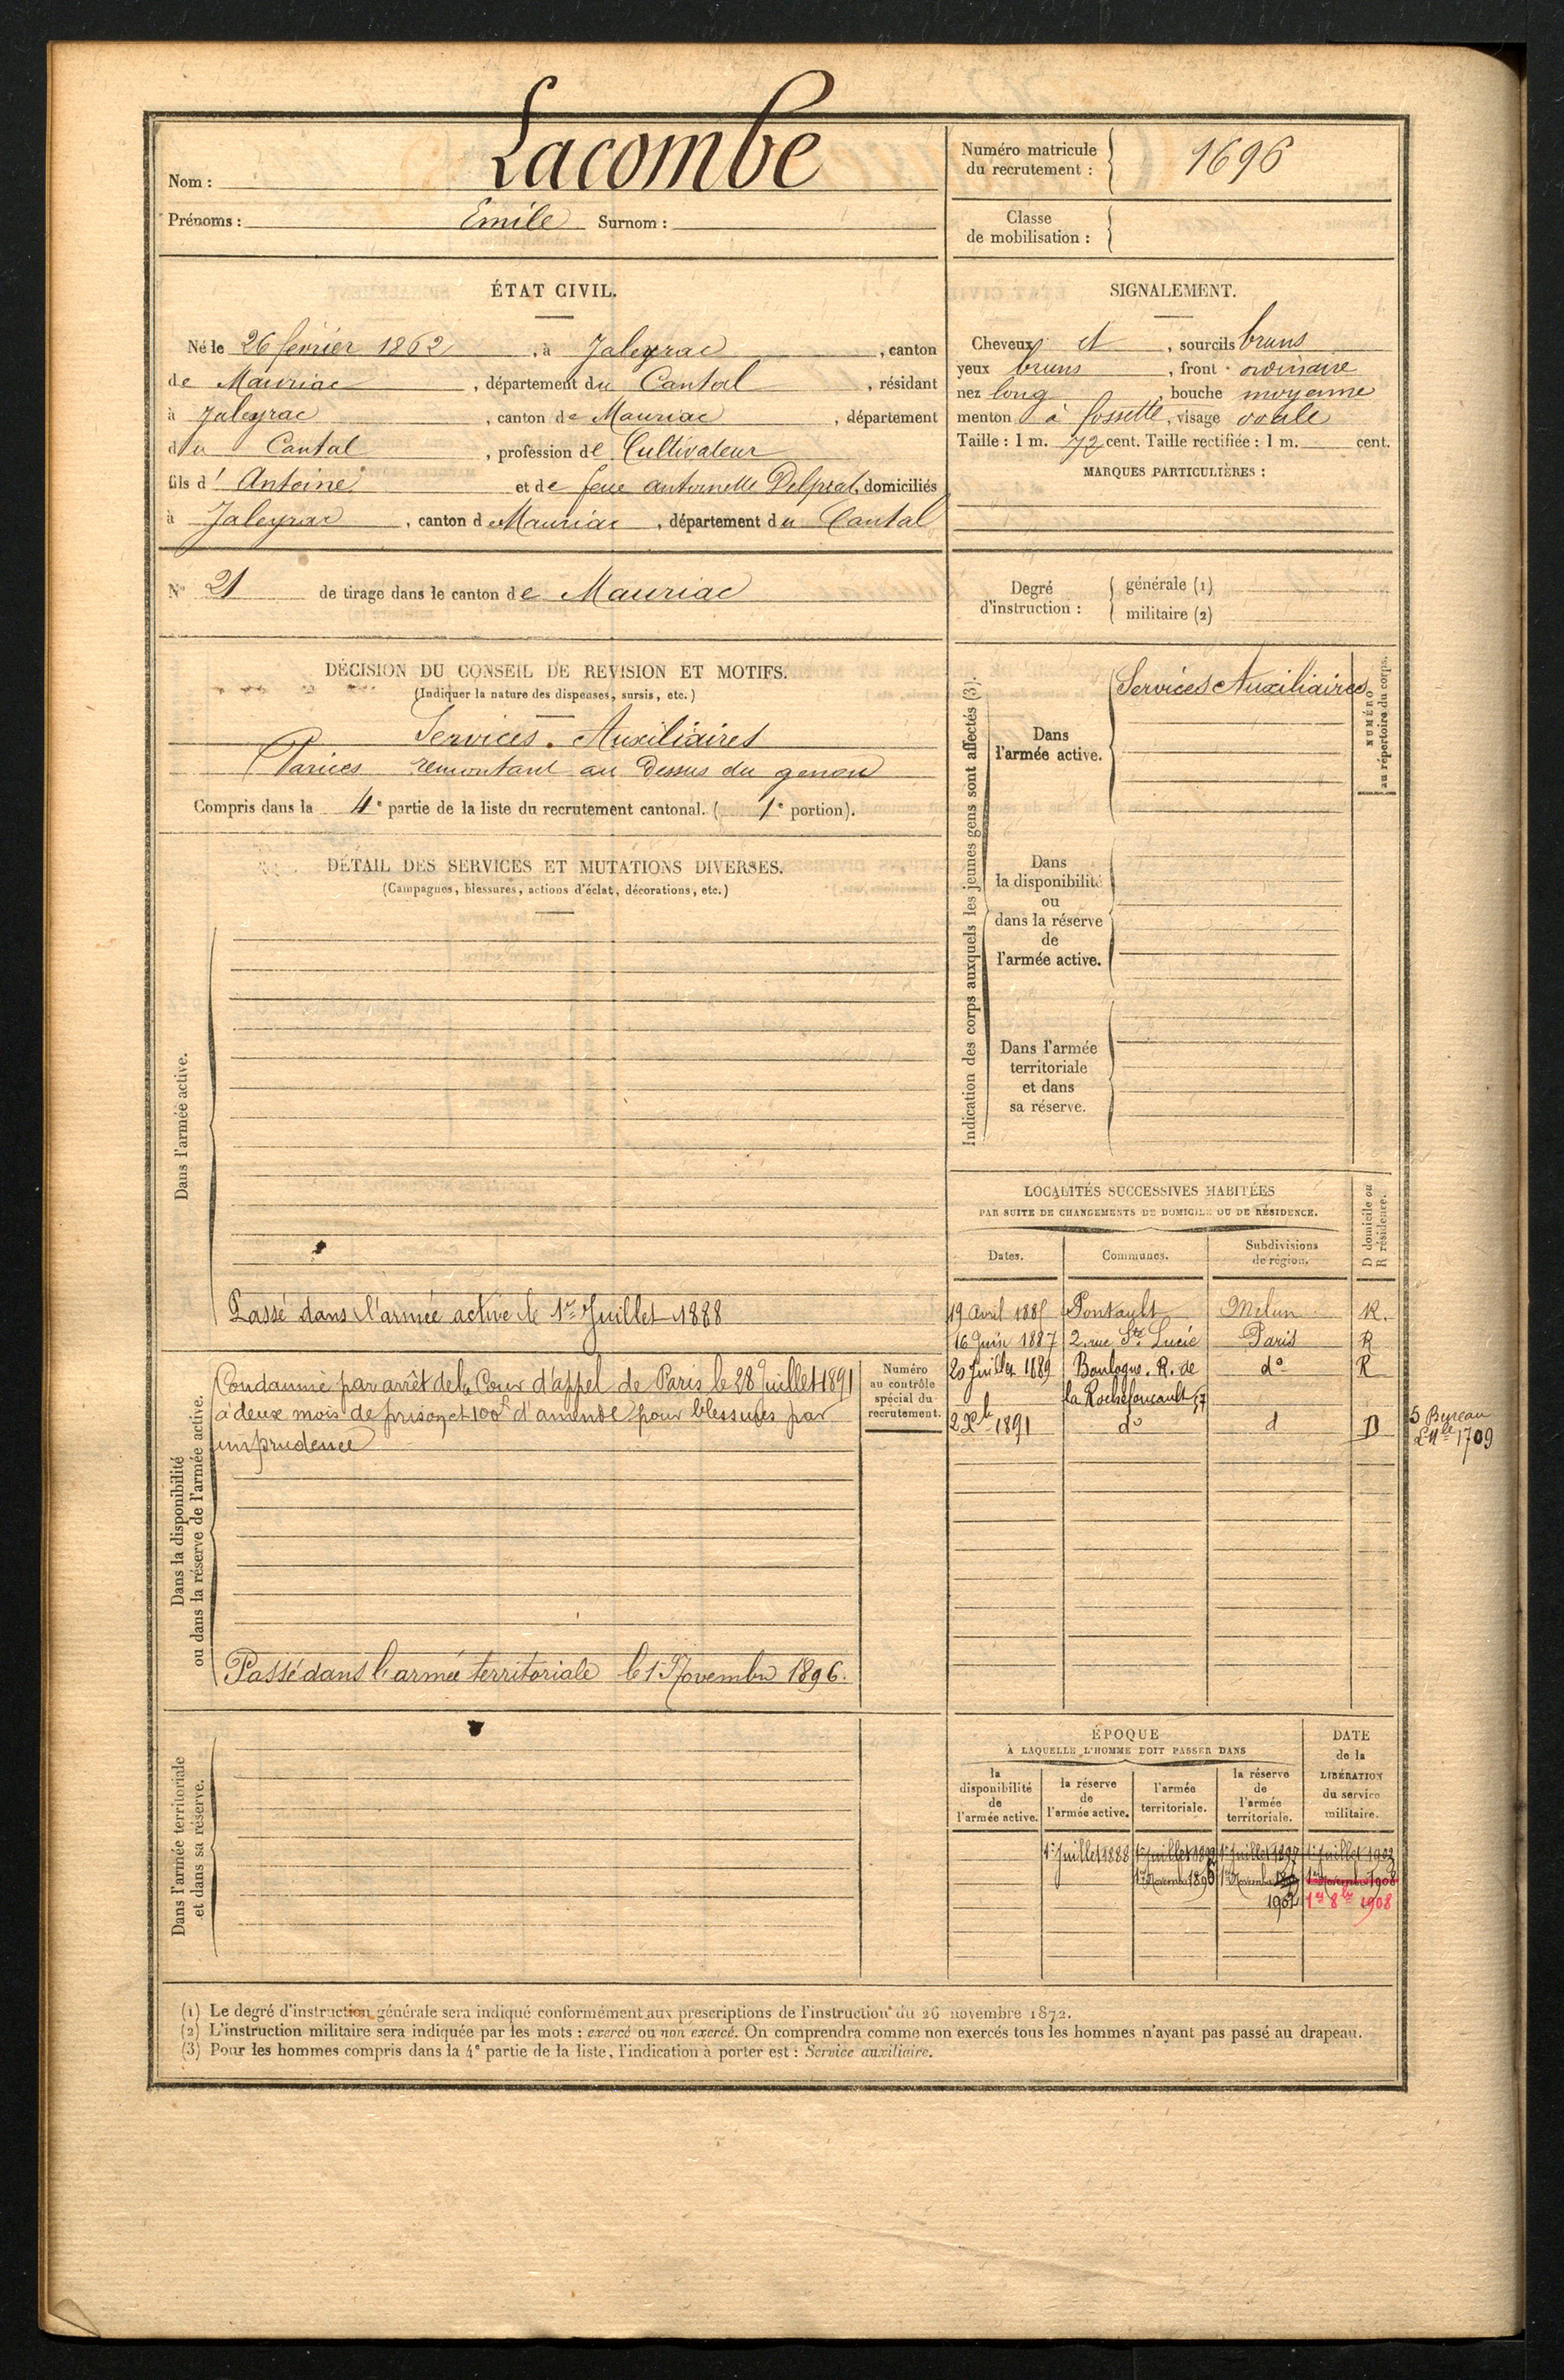 Nom : Lacombe
Prénoms : Emile Surnom :
Numéro matricule du recrutement : 1696
Classe de mobilisation :
ÉTAT CIVIL.
Né le 26 février 1862, à Jaleyrac, canton
de Mauriac, département du Cantal, résidant
à Jaleyrac, canton de Mauriac, département
du Cantal, profession de Cultivateur
fils d' Antoine et de feue antoinette Delprat, domiciliés
à Jaleyrac, canton de Mauriac, département du Cantal
SIGNALEMENT.
Cheveux et, sourcils bruns
yeux bruns, front ordinaire
nez long, bouche moyenne
menton à fossette, visage ovale
Taille : 1 m. 72 cent. Taille rectifiée : 1 m. cent.
MARQUES PARTICULIÈRES :
N° 21 de tirage dans le canton de Mauriac
Degré d'instruction :
générale (1)
militaire (2)
DÉCISION DU CONSEIL DE REVISION ET MOTIFS.
(Indiquer la nature des dispenses, sursis, etc.)
Services Auxiliaires
Varices remontant au Dessus du genou
Compris dans la 4e partie de la liste du recrutement cantonal. ( 1e portion).
DÉTAIL DES SERVICES ET MUTATIONS DIVERSES.
(Campagnes, blessures, actions d'éclat, décorations, etc.)
Dans l'armée active.
Passé dans l'armée active le 1er Juillet 1888
Dans la disponibilité
ou dans la réserve de l'armée active.
Condamné par arrêt de la Cour d'appel de Paris le 28 Juillet 1891
à deux mois de prison et 100f d'amende pour blessures par
imprudence
Passé dans l'armée territoriale le 1er Novembre 1896.
Numéro
au contrôle
spécial du
recrutement.
Dans l'armée territoriale
et dans sa réserve.
Indication des corps auxquels les jeunes gens sont affectés (3).
Dans
l'armée active.
Services Auxiliaires
NUMÉRO
au répertoire du corps.
Dans
la disponibilité
ou
dans la réserve
de
l'armée active.
Dans l'armée
territoriale
et dans
sa réserve.
LOCALITÉS SUCCESSIVES HABITÉES
PAR SUITE DE CHANGEMENTS DE DOMICILE OU DE RÉSIDENCE.
Dates. Communes. Subdivisions de région. D domicile ou R résidence.
19 avril 1885 Pontault Melun R.
16 Juin 1887 2, rue Ste Lucie Paris R
20 Juillet 1889 Boulogne. R. de do R
la Rochefoucault, 7
2 Xbre 1891 do d D
5 Bureau
1709
ÉPOQUE
À LAQUELLE L'HOMME DOIT PASSER DANS
la
disponibilité
de
l'armée active.
la réserve
de
l'armée active.
l'armée
territoriale.
la réserve
de
l'armée
territoriale.
DATE
de la
LIBÉRATION
du service
militaire.
1er Juillet 1888 1er Juillet 1892 1er Juillet 1897 1er Juillet 1903
1er Novembre 1896 1er Novembre 1er Novembre 1908
1902 1er 8bre 1908
(1) Le degré d'instruction générale sera indiqué conformément aux prescriptions de l'instruction du 26 novembre 1872.
(2) L'instruction militaire sera indiquée par les mots : exercé ou non exercé. On comprendra comme non exercés tous les hommes n'ayant pas passé au drapeau.
(3) Pour les hommes compris dans la 4e partie de la liste, l'indication à porter est : Service auxiliaire.